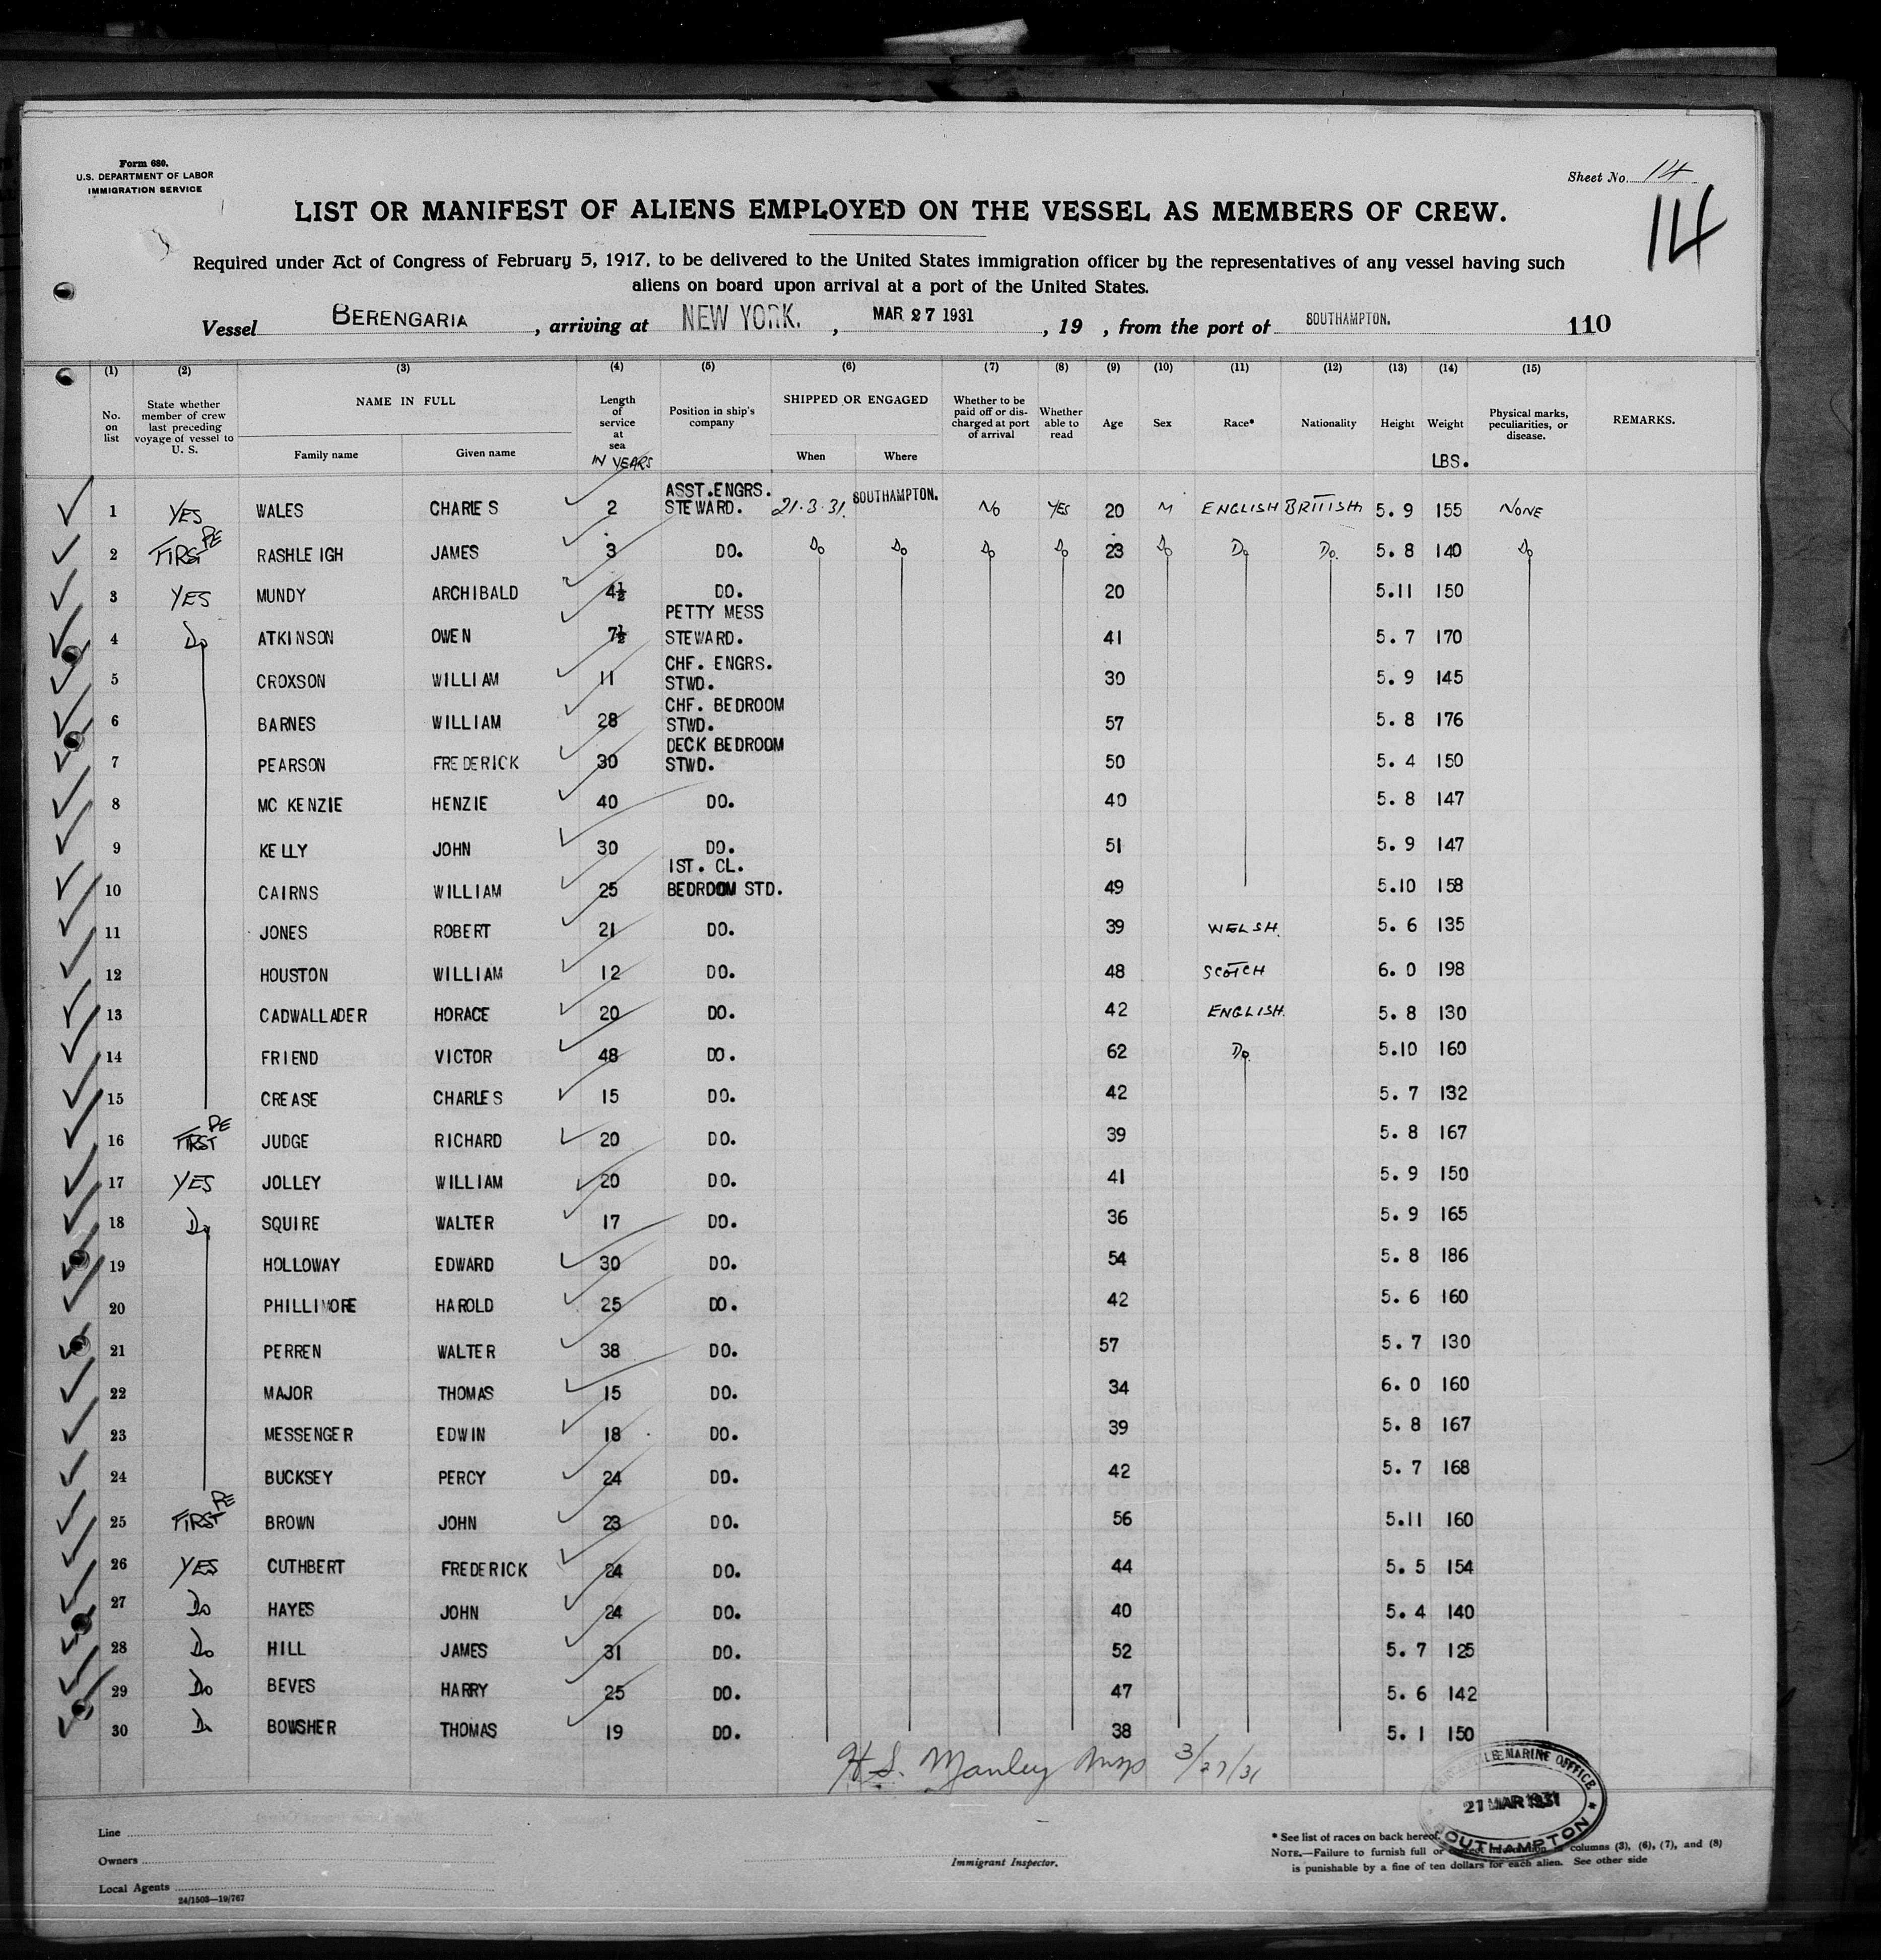 Form 680.
U.S. DEPARTMENT OF LABOR
IMMIGRATION SERVICE
Sheet No. 14
14
LIST OR MANIFEST OF ALIENS EMPLOYED ON THE VESSEL AS MEMBERS OF CREW.
Required under Act of Congress of February 5, 1917, to be delivered to the United States immigration officer by the representatives of any vessel having such
aliens on board upon arrival at a port of the United States.
Vessel BERENGARIA, arriving at NEW YORK., MAR 27 1931, 19 , from the port of SOUTHAMPTON. 110
(1) (2) (3) (4) (5) (6) (7) (8) (9) (10) (11) (12) (13) (14) (15)
No. on list State whether member of crew last preceding voyage of vessel to U. S. NAME IN FULL Family name Given name Length of service at sea IN YEARS Position in ship's company SHIPPED OR ENGAGED When Where Whether to be paid off or discharged at port of arrival Whether able to read Age Sex Race* Nationality Height Weight LBS. Physical marks, peculiarities, or disease. REMARKS.
1 YES WALES CHARLES 2 ASST. ENGRS. STEWARD. 21.3.31. SOUTHAMPTON. NO YES 20 M ENGLISH BRITISH 5. 9 155 NONE
2 FIRST PE RASHLEIGH JAMES 3 DO. Do Do Do Do 23 Do Do Do. 5. 8 140 Do
3 YES MUNDY ARCHIBALD 4½ DO. 20 5.11 150
4 Do ATKINSON OWEN 7½ PETTY MESS STEWARD. 41 5. 7 170
5 CROXSON WILLIAM 11 CHF. ENGRS. STWD. 30 5. 9 145
6 BARNES WILLIAM 28 CHF. BEDROOM STWD. 57 5. 8 176
7 PEARSON FREDERICK 30 DECK BEDROOM STWD. 50 5. 4 150
8 MC KENZIE HENZIE 40 DO. 40 5. 8 147
9 KELLY JOHN 30 DO. 51 5. 9 147
10 CAIRNS WILLIAM 25 1ST. CL. BEDROOM STD. 49 5.10 158
11 JONES ROBERT 21 DO. 39 WELSH. 5. 6 135
12 HOUSTON WILLIAM 12 DO. 48 SCOTCH 6. 0 198
13 CADWALLADER HORACE 20 DO. 42 ENGLISH. 5. 8 130
14 FRIEND VICTOR 48 DO. 62 Do. 5.10 160
15 CREASE CHARLES 15 DO. 42 5. 7 132
16 FIRST PE JUDGE RICHARD 20 DO. 39 5. 8 167
17 YES JOLLEY WILLIAM 20 DO. 41 5. 9 150
18 Do SQUIRE WALTER 17 DO. 36 5. 9 165
19 HOLLOWAY EDWARD 30 DO. 54 5. 8 186
20 PHILLIMORE HAROLD 25 DO. 42 5. 6 160
21 PERREN WALTER 38 DO. 57 5. 7 130
22 MAJOR THOMAS 15 DO. 34 6. 0 160
23 MESSENGER EDWIN 18 DO. 39 5. 8 167
24 BUCKSEY PERCY 24 DO. 42 5. 7 168
25 FIRST PE BROWN JOHN 23 DO. 56 5.11 160
26 YES CUTHBERT FREDERICK 24 DO. 44 5. 5 154
27 Do HAYES JOHN 24 DO. 40 5. 4 140
28 Do HILL JAMES 31 DO. 52 5. 7 125
29 Do BEVES HARRY 25 DO. 47 5. 6 142
30 Do BOWSHER THOMAS 19 DO. 38 5. 1 150
H. S. Manley 3/27/31
MARINE OFFICE
21 MAR 1931
SOUTHAMPTON
Line
Owners
Local Agents
24/1503—19/767
Immigrant Inspector.
* See list of races on back hereof.
NOTE.—Failure to furnish full or correct information in columns (3), (6), (7), and (8)
is punishable by a fine of ten dollars for each alien. See other side